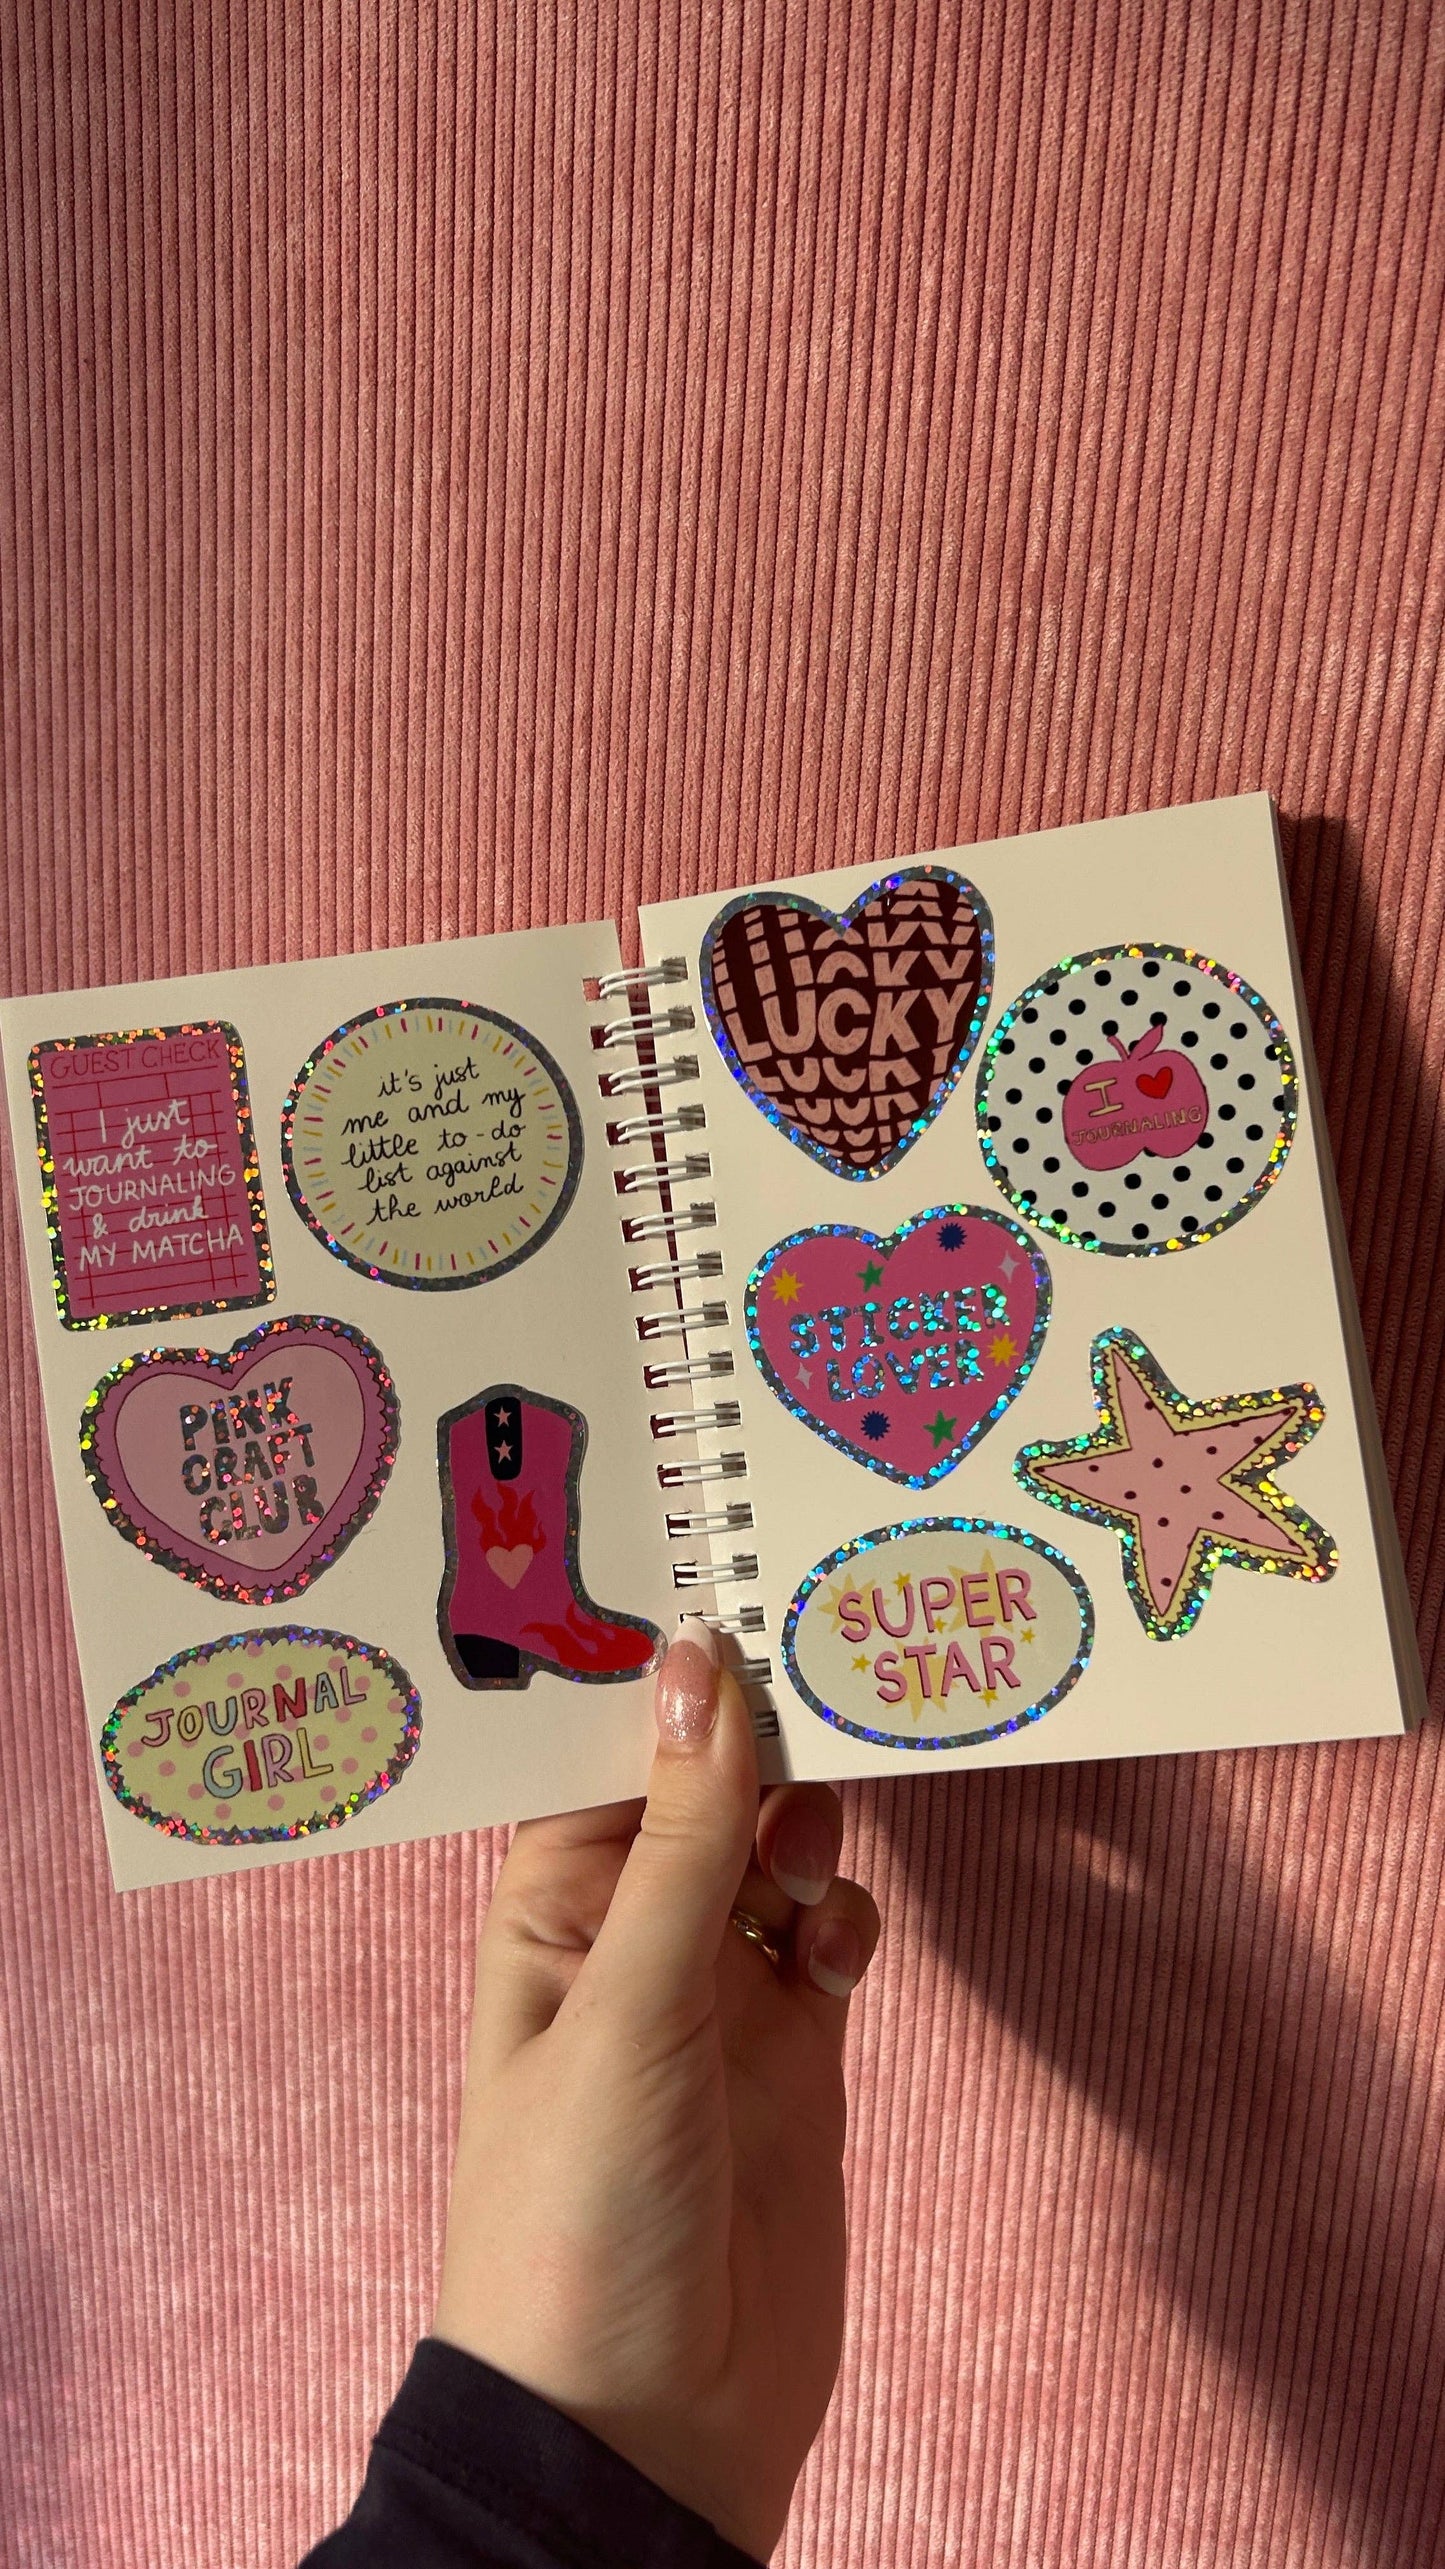 GUEST CHECK
I just
want to
JOURNALING
& drink
MY MATCHA
it's just
me and my
little to-do
list against
the world
PINK
CRAFT
CLUB
JOURNAL
GIRL
LUCKY
LUCKY
LUCKY
LUCKY
I
JOURNALING
STICKER
LOVER
SUPER
STAR